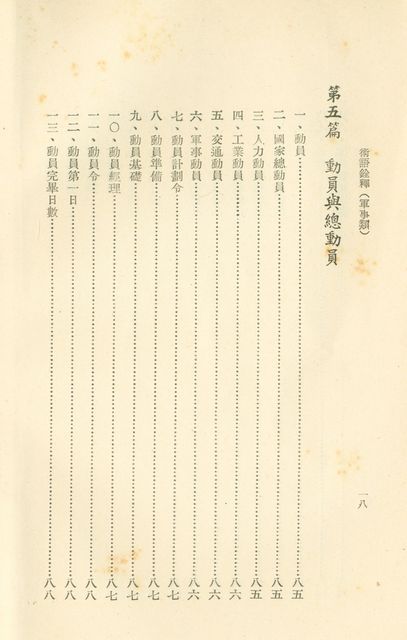 術語銓釋（軍事類）
一八
第五篇　動員與總動員
一、動員……八五
二、國家總動員……八五
三、人力動員……八五
四、工業動員……八六
五、交通動員……八六
六、軍事動員……八六
七、動員計劃令……八七
八、動員準備……八七
九、動員基礎……八七
一〇、動員經理……八七
一一、動員令……八八
一二、動員第一日……八八
一三、動員完畢日數……八八